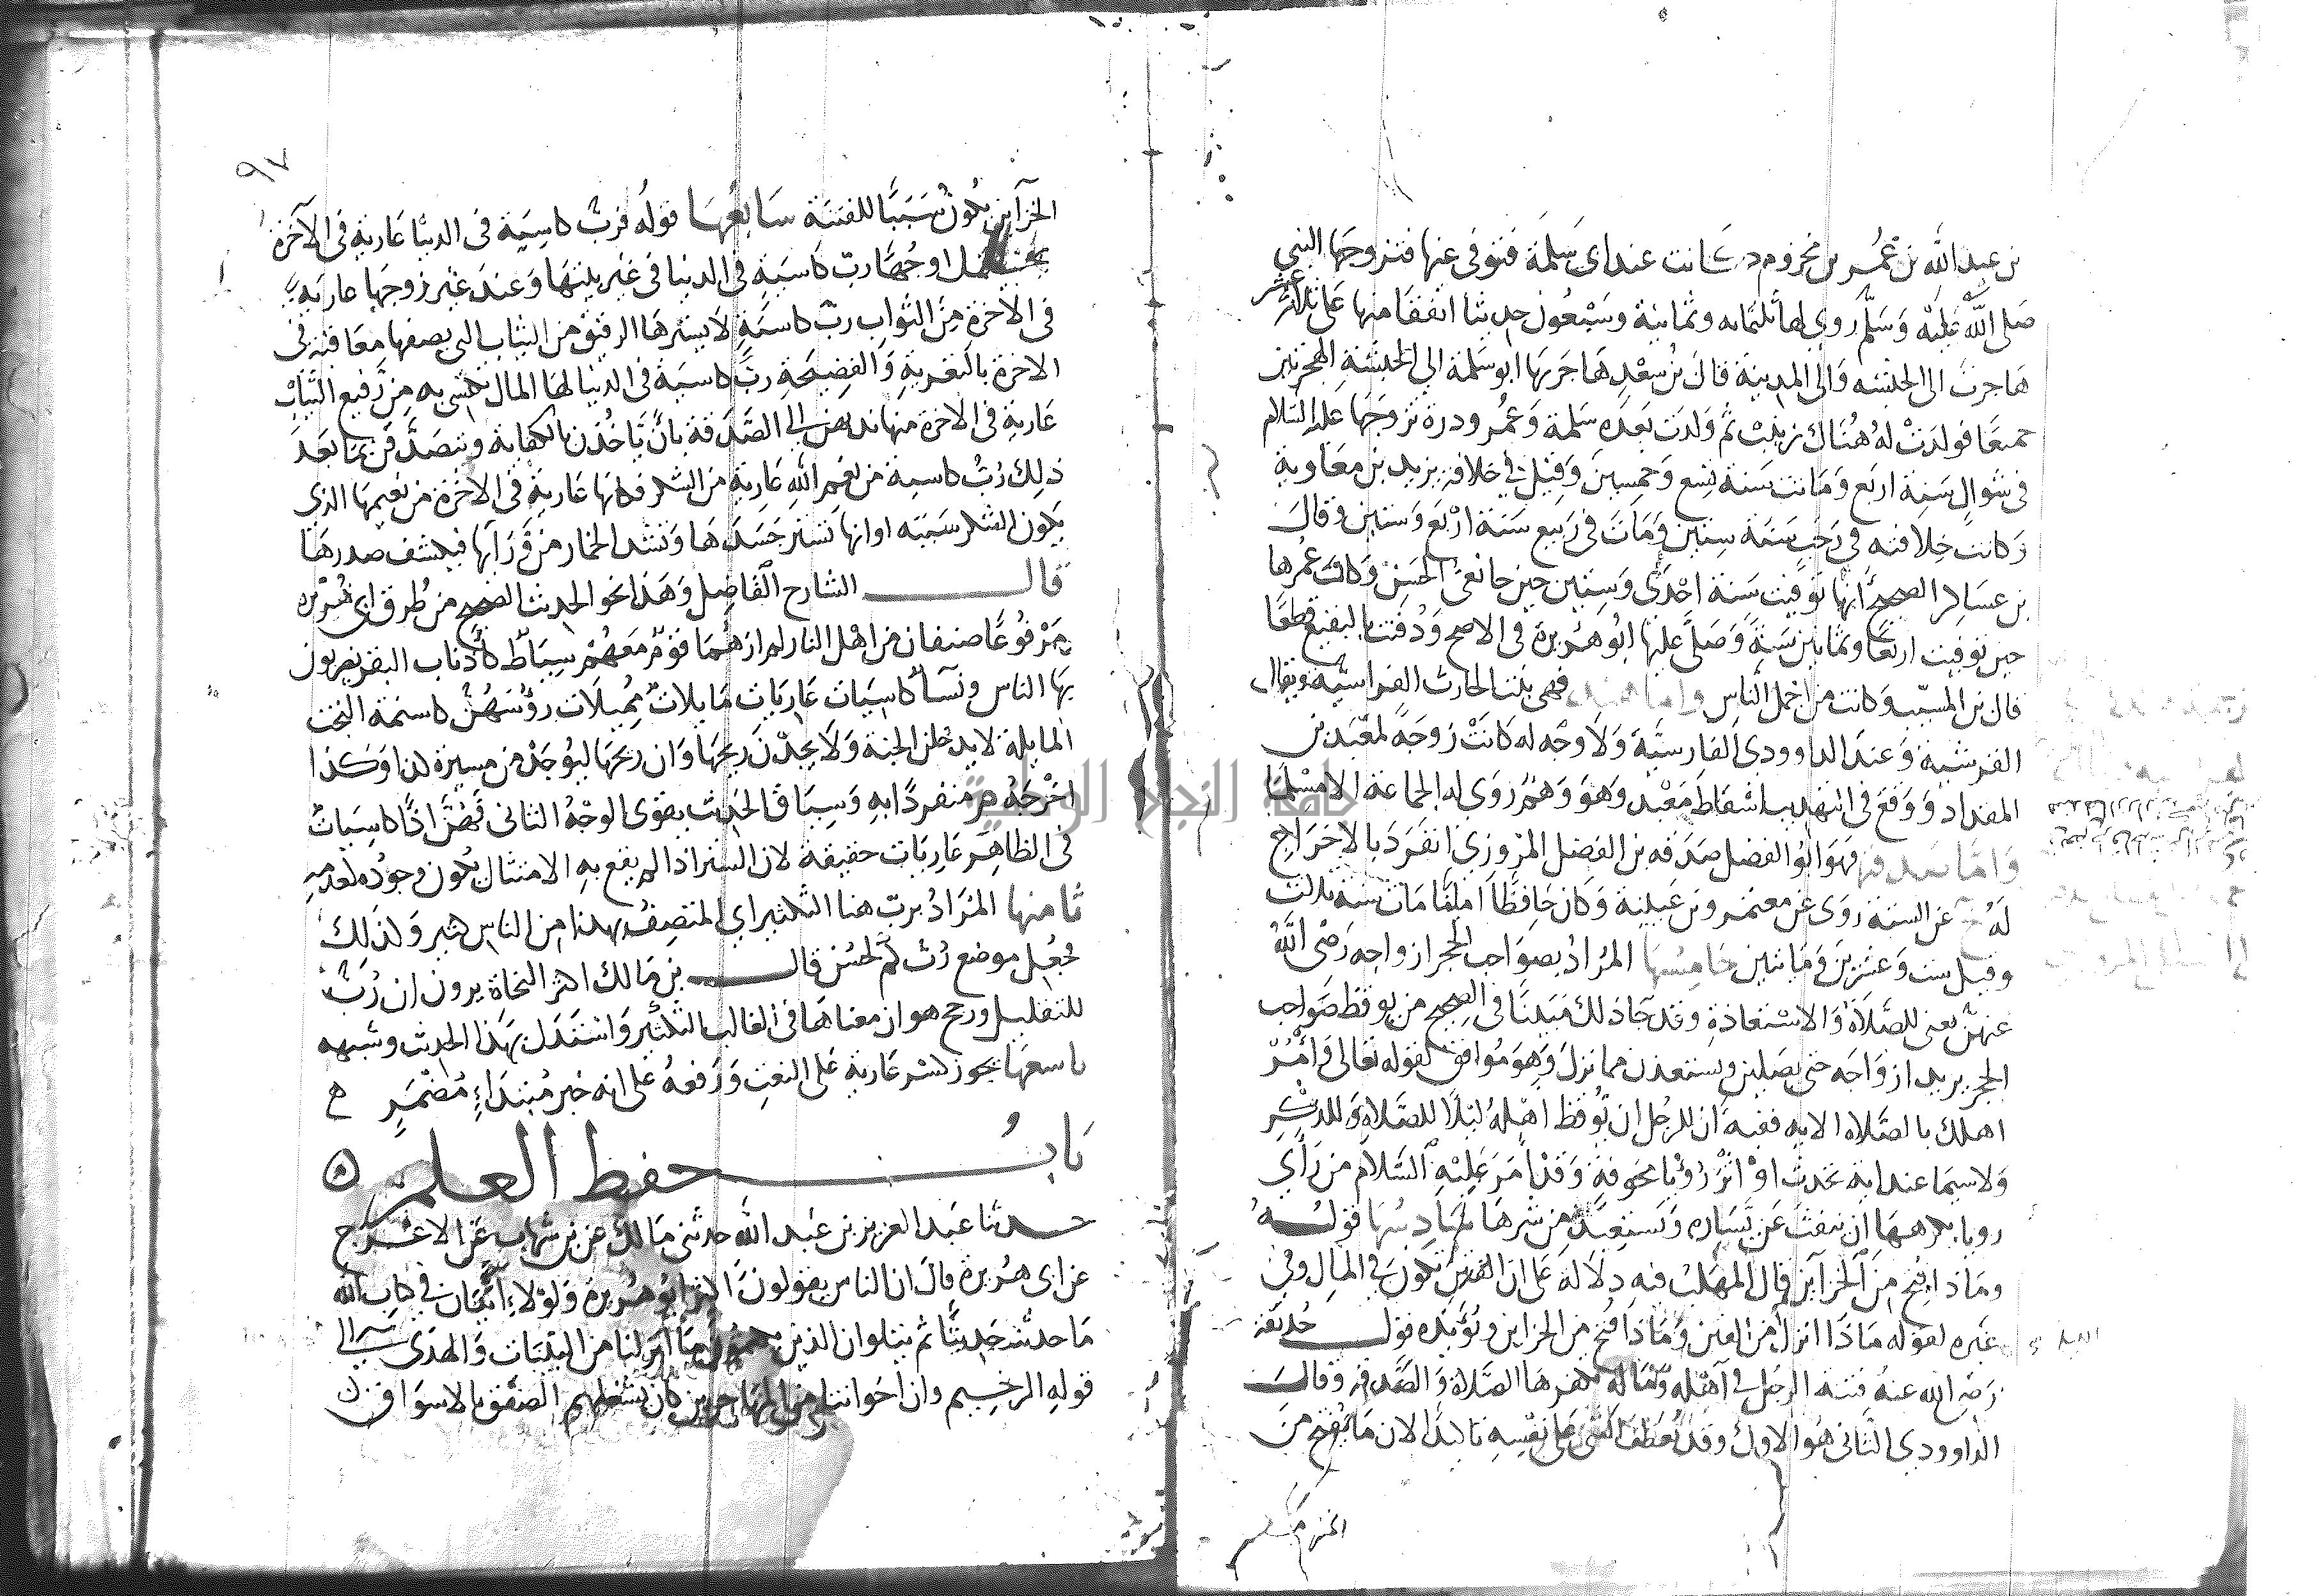 بن عبد الله بن عمر بن مخزوم كانت عند ابي سلمة فتوفى عنها فتزوجها النبي
صلى الله عليه وسلم روي لها ثلثمايه وثمانية وسبعون حديثا اتفقا منها على ثلاثة عشر
هاجرت الى الحبشه والى المدينة قال بن سعد هاجر بها ابو سلمة الي الحبشة الهجرتين
جميعا فولدت له هناك زينب ثم ولدت بعده سلمة وعمر ودرة تزوجها عليه السلام
في شوال سنة اربع وماتت سنة تسع وخمسين وقيل في خلافة يزيد بن معاوية
وكانت خلافته في رجب سنة ستين ومات في ربيع سنة اربع وستين وقال
بن عساكر الصحيح انها توفيت سنة احدى وستين حين جا نعي الحسين وكان عمرها
حين توفيت اربعا وثمانين سنة وصلى عليها ابو هريرة في الاصح ودفنت بالبقيع قطعا
قال بن المسيب وكانت من اجمل الناس واما هند فهي بنت الحارث الفراسية ويقال
القرشية وعند الداوودي الفارسية ولا وجه له كانت زوجة لمعبد بن
المقداد ووقع في التهذيب اسقاط معبد وهو وهم روى له الجماعة الا مسلما
واما صدقة فهو ابو الفضل صدقة بن الفضل المروزي انفرد بالاخراج
له خ عن الستة روى عن معتمر وبن عيينة وكان حافظا اماما مات سنة ثلاث
وقيل ست وعشرين ومايتين خامسها المراد بصواحب الحجر ازواجه رضى الله
عنهن يعنى للصلاة والاستعاذة وقد جا ذلك مبينا في الصحيح من يوقظ صواحب
الحجر يريد ازواجه حتى يصلين ويستعذن مما نزل وهو موافق لقوله تعالى وامر
اهلك بالصلاة الايه ففيه ان للرجل ان يوقظ اهله ليلا للصلاة وللذكر
ولا سيما عند اية تحدث او اثر رؤيا مخوفة وقد امر عليه السلام من راى
رويا يكرهها ان ينفث عن يساره ويستعيذ من شرها سادسها قوله
وماذا فتح من الخزاين قال المهلب فيه دلالة على ان الفتن تكون في المال وفي
غيره لقوله ماذا انزل من الفتن وماذا فتح من الخزاين ويؤيده قول حذيفة
رضي الله عنه فتنة الرجل في اهله وماله يكفرها الصلاة والصدقة وقال
الداوودي الثاني هو الاول وقد يعطف الشئ على نفسه تاكيدا لان ما يفتح من
٩٧
الخزاين يكون سببا للفتنة سابعها قوله فرب كاسية في الدنيا عارية في الآخرة
يحتمل اوجها رب كاسية في الدنيا في غير بيتها وعند غير زوجها عارية
في الاخرة من الثواب رب كاسية لا يسترها الرقيق من الثياب التي يصفها معاقبة في
الاخرة بالتعرية والفضيحة رب كاسية في الدنيا لها المال تكتسي به من رفيع الثياب
عارية في الاخرة منها ندبهن الى الصدقة بان ياخذن بالكفاية ويتصدقن بما بعد
ذلك رب كاسية من نعم الله عارية من الشكر فكانها عارية في الاخرة من نعيمها الذي
يكون الشكر سببه او انها تستر جسدها وتشد الخمار من ورآيها فيكشف صدرها
قال الشارح الفاضل وهذا نحو الحديث الصحيح من طرق ابي هريره
مرفوعا صنفان من اهل النار لم ارهما قوم معهم سياط كأذناب البقر يضربون
بها الناس ونسآ كاسيات عاريات مايلات مميلات رؤسهن كاسنمة البخت
المايلة لا يدخلن الجنة ولا يجدن ريحها وان ريحها ليوجد من مسيرة كذا وكذا
اخرجه م منفردا به وسياق الحديث يقوى الوجه الثاني فهن اذا كاسيات
في الظاهر عاريات حقيقة لان الستر اذا لم يقع به الامتثال يكون وجوده كعدمه
ثامنها المراد برب هنا التكثير اي المتصف بهذا من الناس كثير ولذلك
لو جعل موضع رب كم لحسن قال بن مالك اكثر النحاة يرون ان رب
للتقليل ورجح هو ان معناها في الغالب التكثير واستدل بهذا الحديث وشبهه
تاسعها يجوز كسر عارية على النعت ورفعه على انه خبر مبتداء مضمر
باب حفظ العلم
حدثنا عبد العزيز بن عبد الله حدثني مالك عن بن شهاب عن الاعرج
عن ابي هريرة قال ان الناس يقولون اكثر ابو هريرة ولولا آيتان في كتاب الله
ما حدثت حديثا ثم يتلو ان الذين يكتمون ما انزلنا من البينات والهدى الى
قوله الرحيم وان اخواننا من المهاجرين كان يشغلهم الصفق بالاسواق